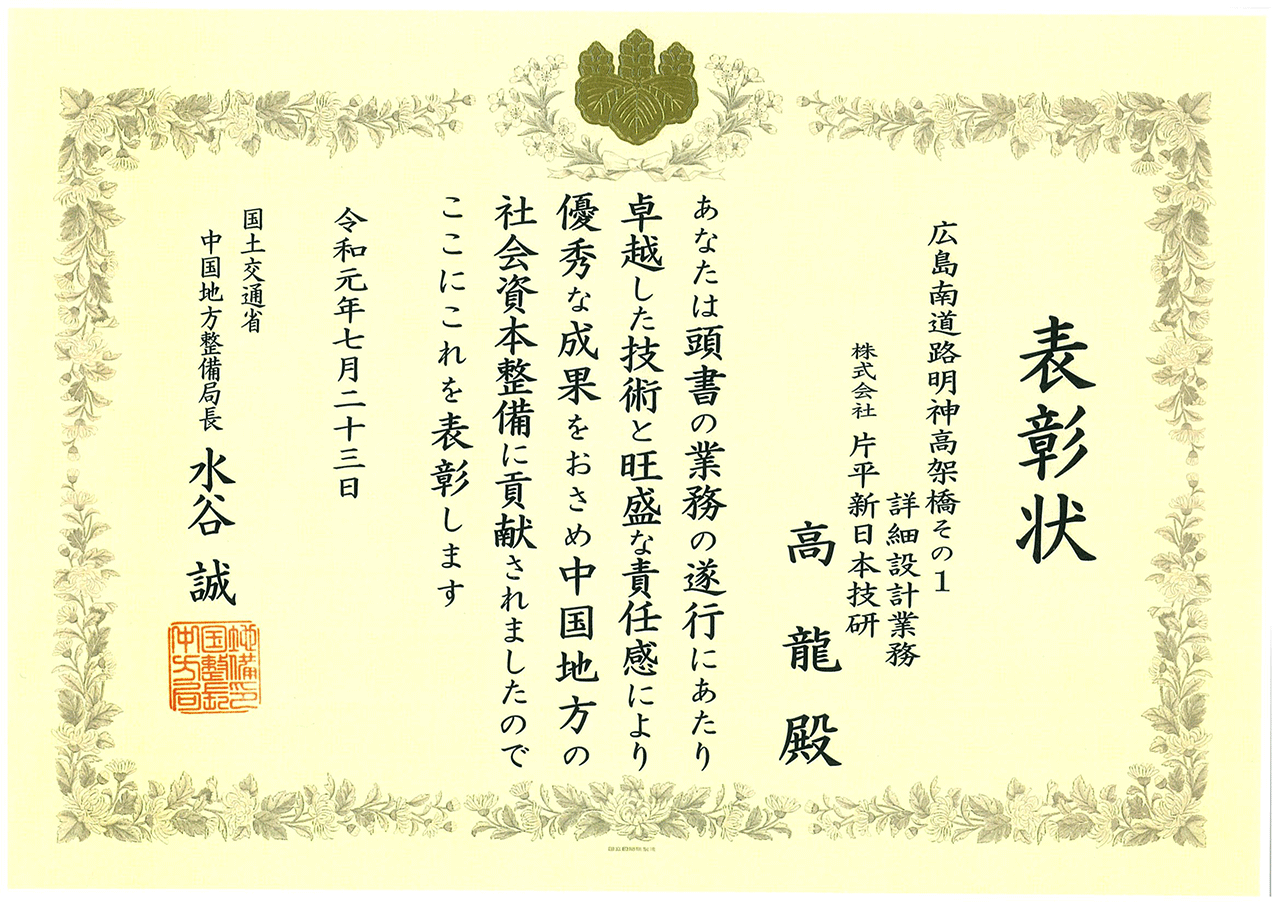 表彰状
広島南道路明神高架橋その1
詳細設計業務
株式会社 片平新日本技研
高 龍 殿
あなたは頭書の業務の遂行にあたり
卓越した技術と旺盛な責任感により
優秀な成果をおさめ中国地方の
社会資本整備に貢献されましたので
ここにこれを表彰します
令和元年七月二十三日
国土交通省
中国地方整備局長 水谷 誠